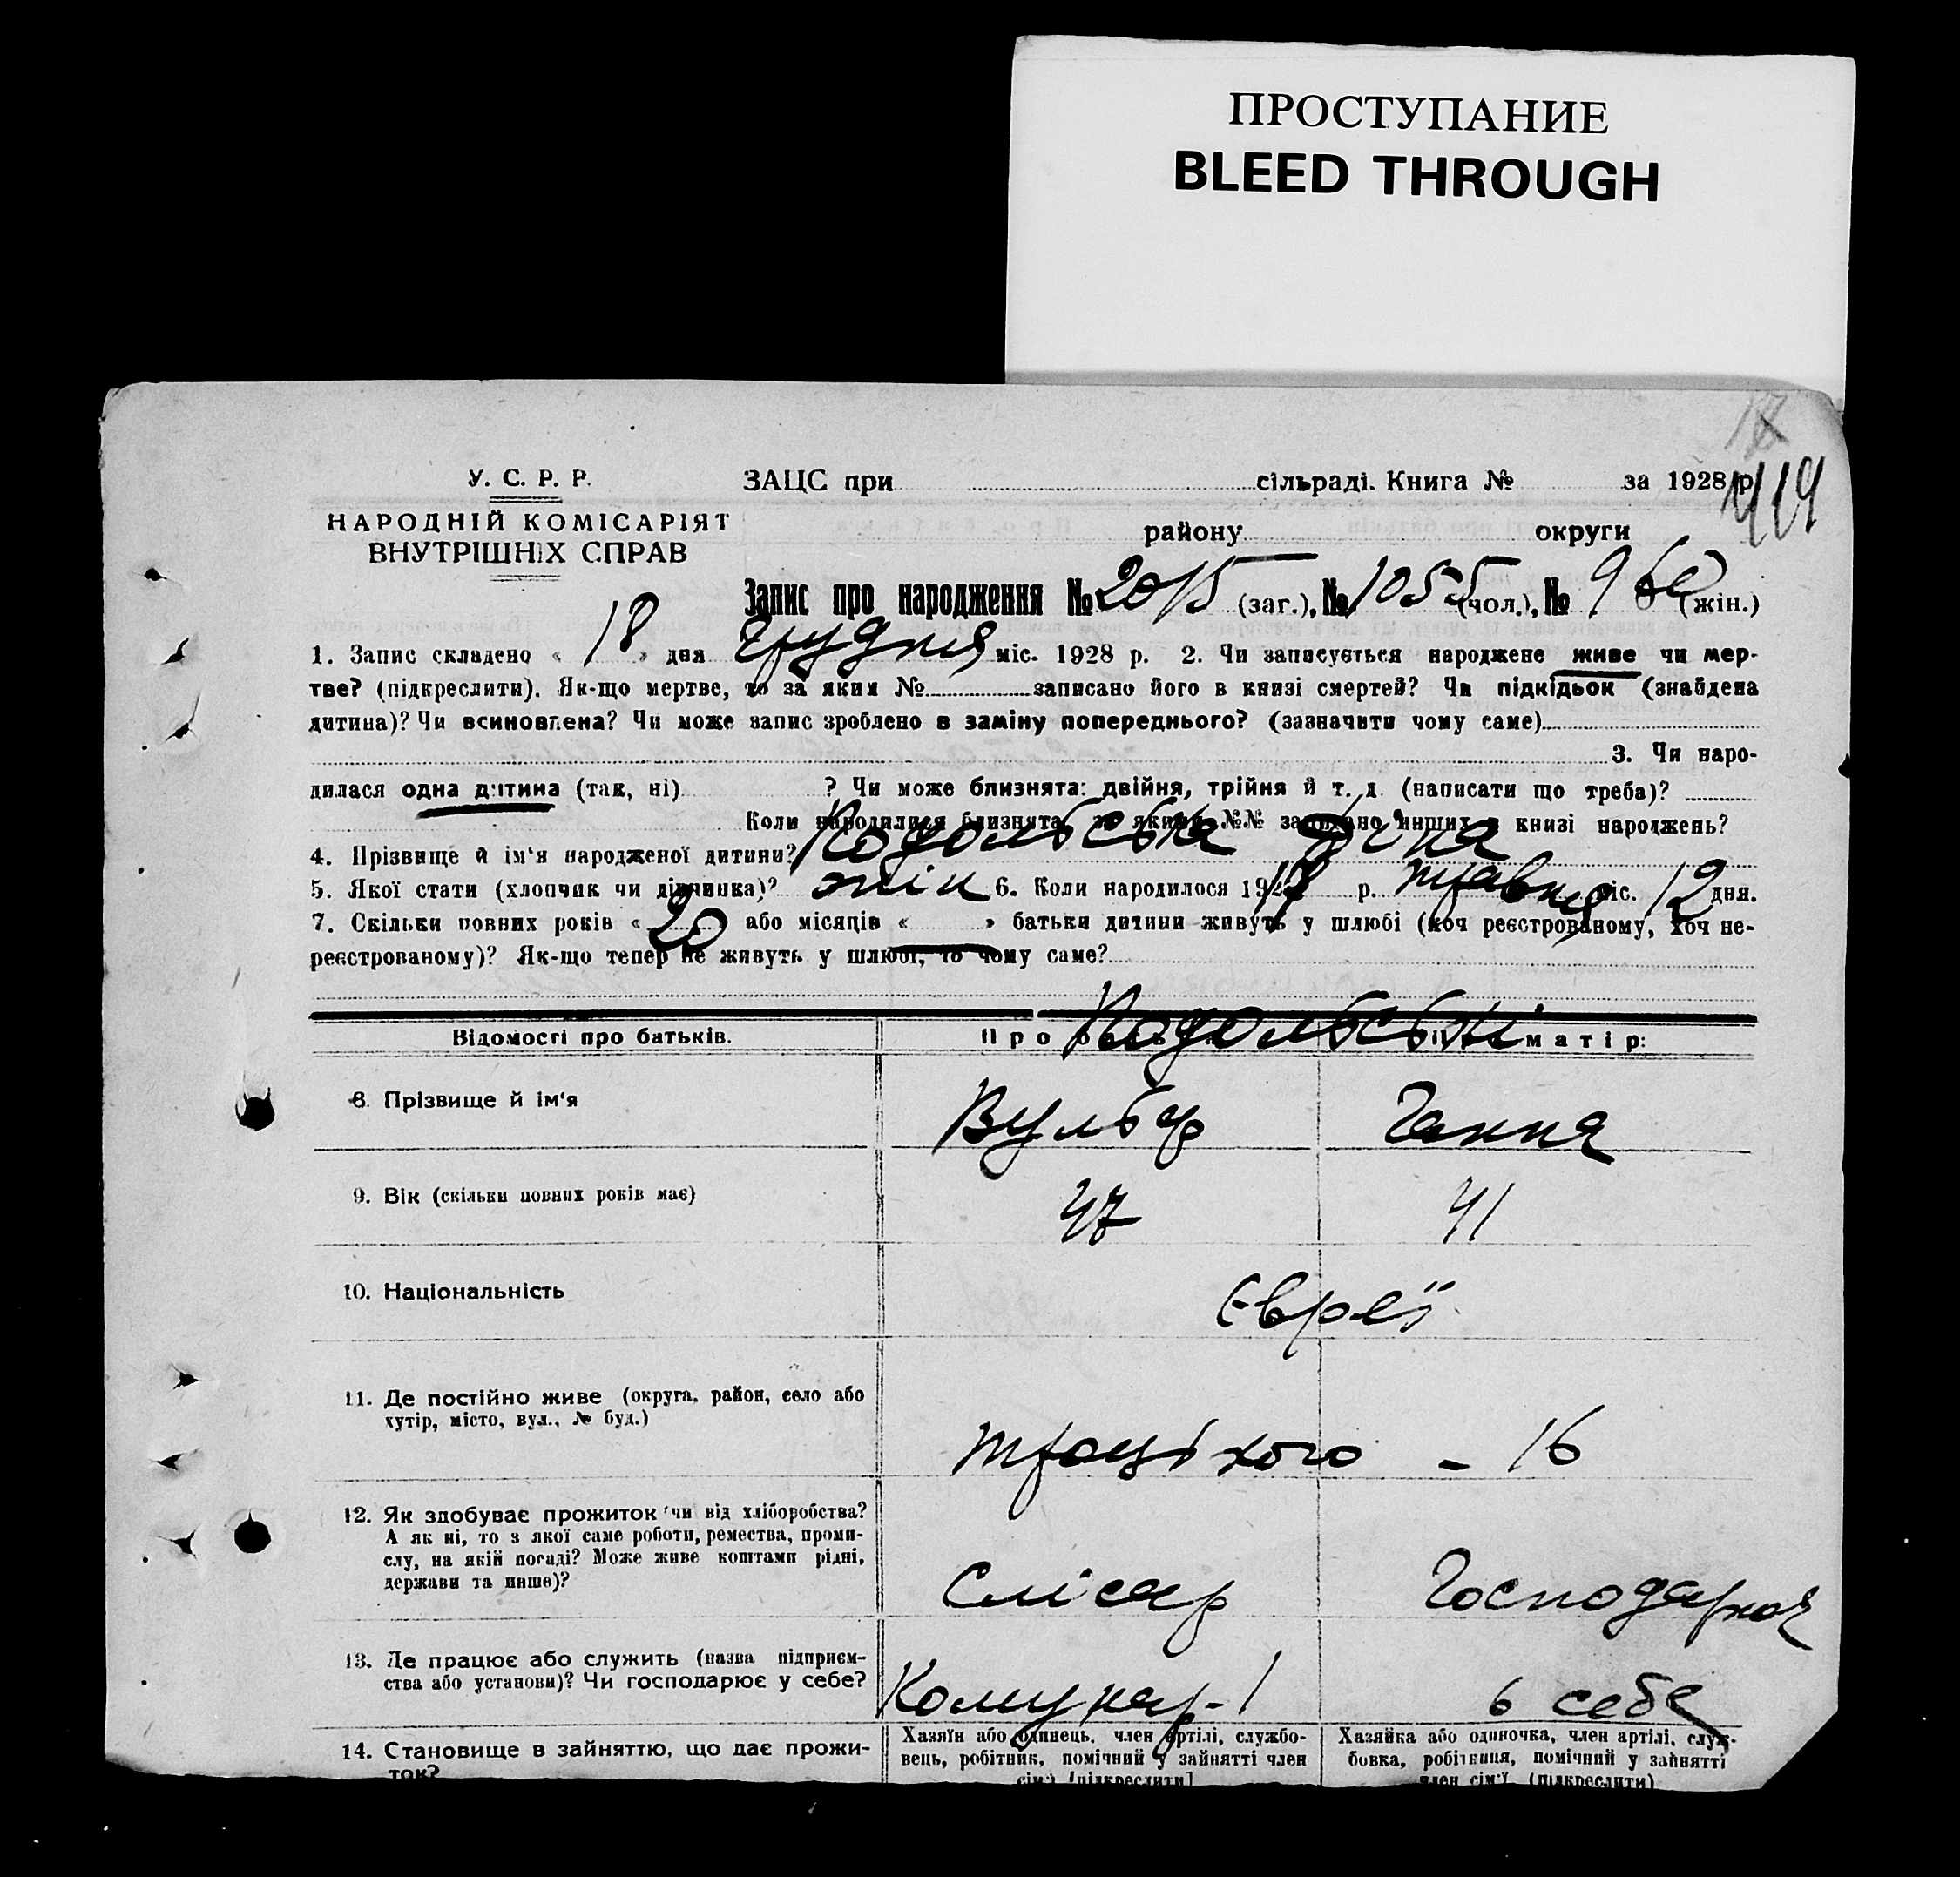 ПРОСТУПАНИЕ
BLEED THROUGH
419
У. С. Р. Р.
НАРОДНІЙ КОМІСАРІЯТ
ВНУТРІШНІХ СПРАВ
ЗАЦС при сільраді. Книга № за 1928 р.
району округи
Запис про народження № 2015 (заг.), № 1055 (чол.), № 960 (жін.)
1. Запис складено « 18 » дня грудня міс. 1928 р. 2. Чи записується народжене живе чи мер-
тве? (підкреслити). Як-що мертве, то за яким № записано його в книзі смертей? Чи підкідьок (знайдена
дитина)? Чи всиновлена? Чи може запис зроблено в заміну попереднього? (зазначити чому саме)
3. Чи наро-
дилася одна дитина (так, ні) ? Чи може близнята: двійня, трійня й т. д. (написати що треба)?
Коли народилися близнята, за якими №№ записано инших в книзі народжень?
4. Прізвище й ім'я народженої дитини? Подольська
5. Якої стати (хлопчик чи дівчинка)? жін 6. Коли народилося 19 р. травня міс. 12 дня.
7. Скільки повних років « 20 або місяців « » батьки дитини живуть у шлюбі (хоч реєстрованому, хоч не-
реєстрованому)? Як-що тепер не живуть у шлюбі, то чому саме?
Подольські
Відомості про батьків. Про матір:
8. Прізвище й ім'я Вульф Ганна
9. Вік (скільки повних років має) 47 41
10. Національність Євреї
11. Де постійно живе (округа, район, село або
хутір, місто, вул., № буд.)
Троцького - 16
12. Як здобуває прожиток чи від хліборобства?
А як ні, то з якої саме роботи, ремества, проми-
слу, на якій посаді? Може живе коштами рідні,
держави та инше)?
Слісар Господарка
13. Де працює або служить (назва підприєм-
ства або установи)? Чи господарює у себе?
Комунар-1 в себе
14. Становище в зайняттю, що дає прожи-
ток?
Хазяїн або одинець, член артілі, службо-
вець, робітник, помічний у зайнятті член
сім'ї [підкреслити]
Хазяйка або одиночка, член артілі, служ-
бовка, робітниця, помічний у зайнятті
член сім'ї (підкреслити)